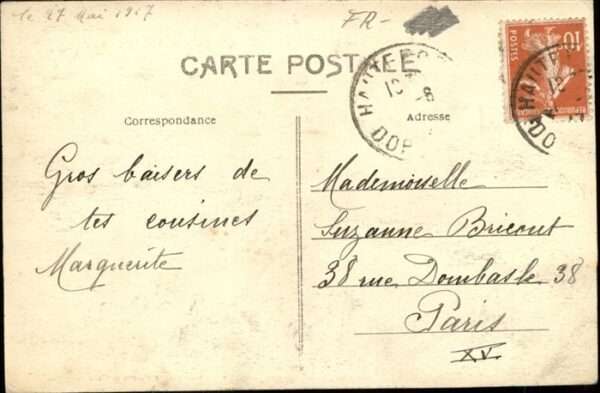 le 27 Mai 1917
FR-
CARTE POSTALE
Correspondance
Adresse
Gros baisers de
tes cousines
Marguerite
Mademoiselle
Suzanne Bricout
38 rue Dombasle 38
Paris
XV
HAUTE
DOR
10
POSTES
HAUTE
DO